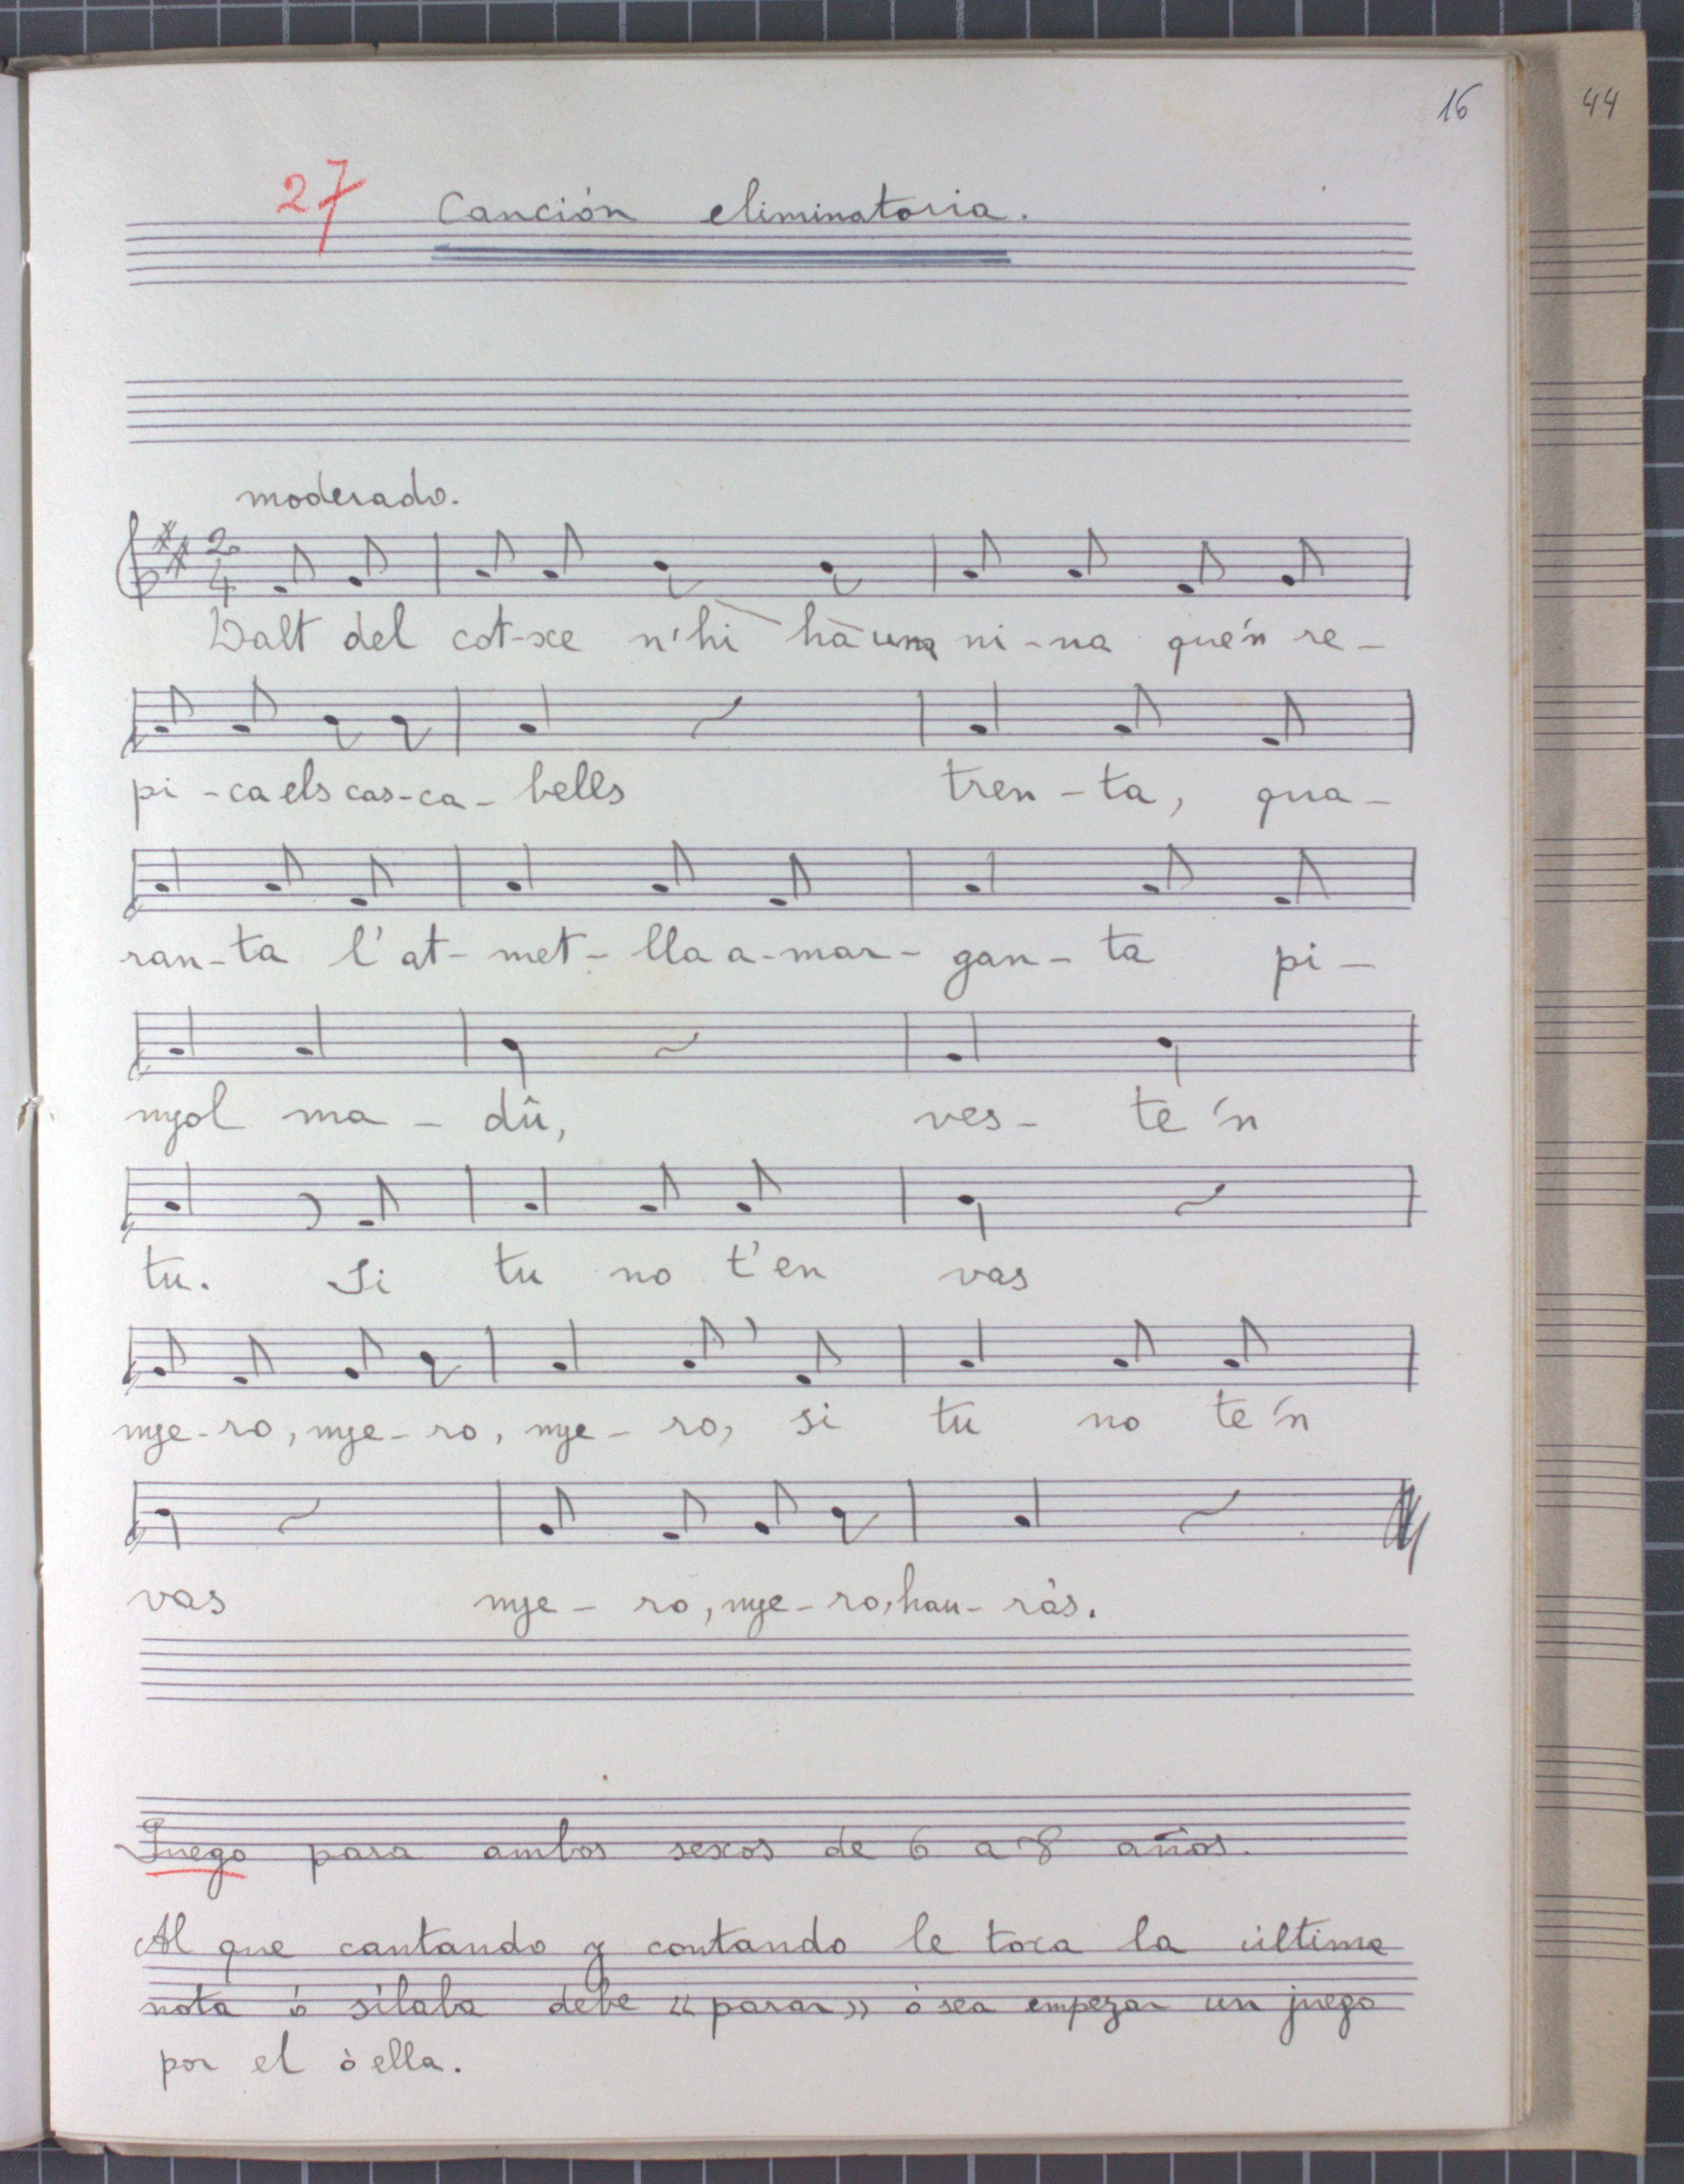 16
44
27 Canción eliminatoria.
moderado.
2 4
Dalt del cot-xe n'hi hà una ni-na que'n re-
pi-ca els cas-ca-bells tren-ta, qua-
ran-ta l'at-met-lla a-mar-gan-ta pi-
nyol ma-dû, ves-te'n
tu. Si tu no t'en vas
nye-ro, nye-ro, nye-ro, si tu no te'n
vas nye-ro, nye-ro, hau-ràs.
Juego para ambos sexos de 6 a 8 años.
Al que cantando y contando le toca la última
nota ó sílaba debe «parar» ó sea empezar un juego
por el ò ella.